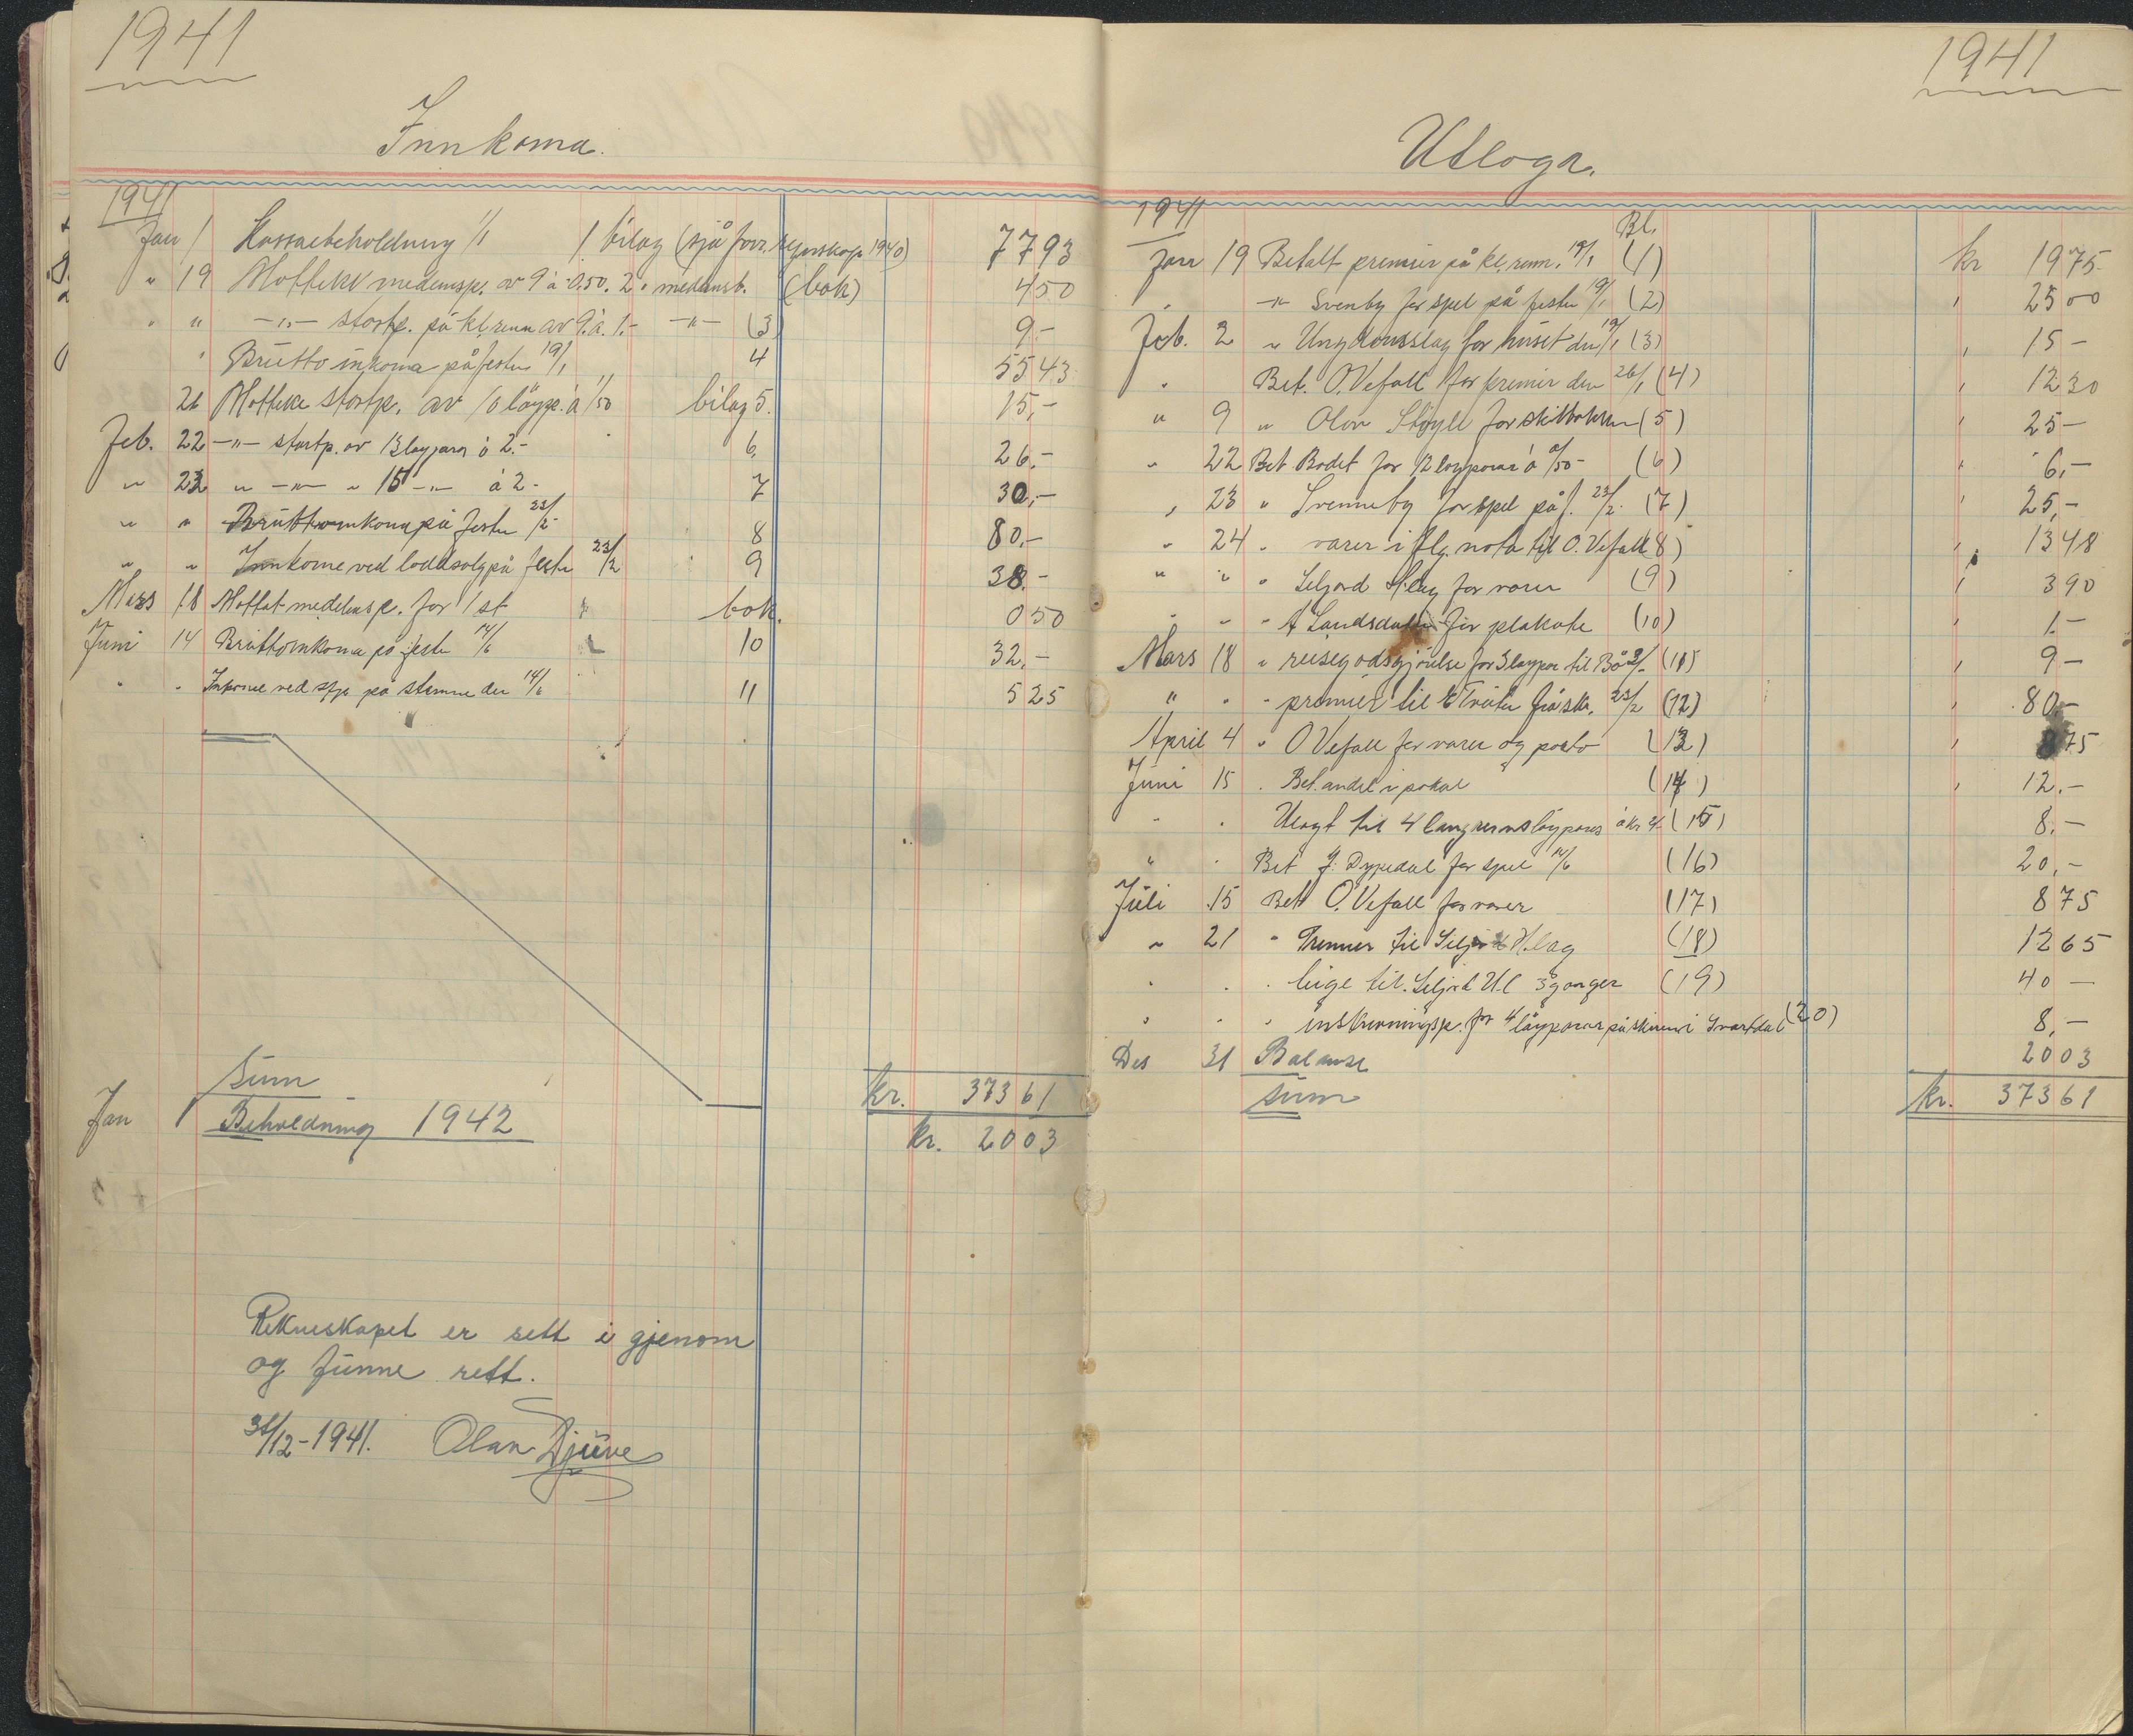 1941
Innkoma.
1941
Jan 1 Kassabeholdning 1/1 1 bilag (sjå forr. rekneskap 1940) 7793
" 19 Motteke medemsp. av 9 à 0,50. 2. medemsb. (bok) 450
" " -"- startp. på kl. renn av 9. à. 1.- -"- (3) 9.-
" Brutto inkoma på festen 19/1 4 5543
26 Motteke startp. av 10 løyp. à 1/50 bilag 5. 15,-
Feb. 22 -"- startp. av 13 løyparar à 2.- 6, 26.-
" 23 " -"- " 15 -"- à 2- 7 30,-
" " Bruttoinkoma på festen 23/2 8 80,-
" " Innkome ved loddsalg på festen 23/2 9 38.-
Mars 18 Mottat medelemsp. for 1 st bok. 050
Juni 14 Bruttoinkoma på festen 14/6 10 32,-
" " Inkome ved på stemne den 14/6 11 525
Sum kr. 37361
Jan 1 Beholdning 1942 kr. 2003
Rekneskapet er sett i gjenom
og funne rett.
31/12-1941. Olav Djuve
1941
Utloga.
1941 Bl.
Jan 19 Betalt premier på kl. renn. 19/1 (1) kr 1975
" -"- Svenby for spel på festen 19/1 (2) " 2500
Feb. 2 " Ungdomsslag for huset den 19/1 (3) " 15-
" Bet. O. Vefall for premier den 26/1 (4) " 1230
" 9 " Olav for (5) " 25-
" 22 Bet Bodet for 12 løyparar à 0/50- (6) " 6,-
" 23 " Svenneby for spel på f. 23/2. (7) " 25,-
" 24 " varer i flg. nota til O. Vefall (8) " 1348
" " " Seljord H.lag for varer (9) " 390
" " " A Landsdalen for plakate (10) " 1.-
Mars 18 " reisegodsgjörelse for 3 løypar til Bø (11) " 9-
" " " premier til Tveiten frå sk. 23/2 (12) " 80,-
April 4 " O Vefall for varer og porto (13) " 875
Juni 15 " Bet. andel i pokal (14) " 12.-
" " Utlagt til 4 langrennsløypares à kr 2 (15) 8,-
" " Bet J. Dypedal for spel 14/6 (16) 20,-
Juli 15 Bet O. Vefall for varer (17) 875
" 21 " Premier til Seljord H.lag (18) 1265
" " " leige til Seljord U.l 3 ganger (19) 40-
" " " innskrivningsp. for 4 løyparar på skirenn i Svartdal (20) 8,-
Des 31 Balanse 2003
Sum kr. 37361